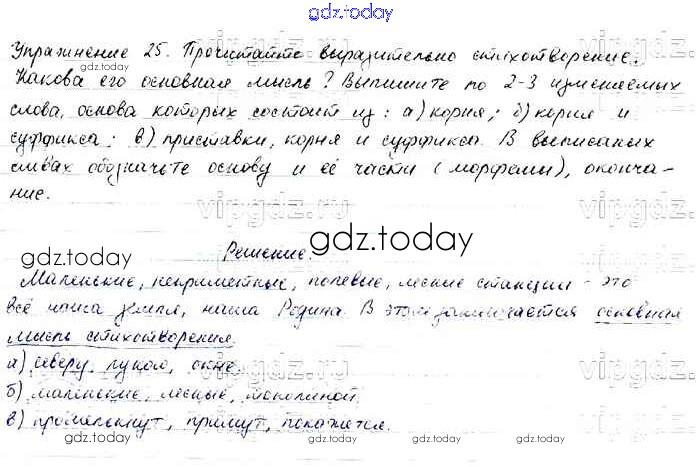 gdz.today
Упражнение 25. Прочитайте выразительно стихотворение.
Какова его основная мысль? Выпишите по 2-3 изменяемых
слова, основа которых состоит из: а) корня; б) корня и
суффикса; в) приставки, корня и суффикса. В выписаных
словах обозначьте основу и её части (морфемы), оконча-
ние.
Решение.
Маленькие, неприметные, полевые, лесные станции - это
всё наша земля, наша Родина. В этом заключается основная
мысль стихотворения.
а) северу, рукой, окне.
б) маленькие, лесные,
в) промелькнут, примут, покажется.
gdz.today
gdz.today
gdz.today
gdz.today
gdz.today
gdz.today
gdz.today
vipgdz.ru
vipgdz.ru
vipgdz.ru
vipgdz.ru